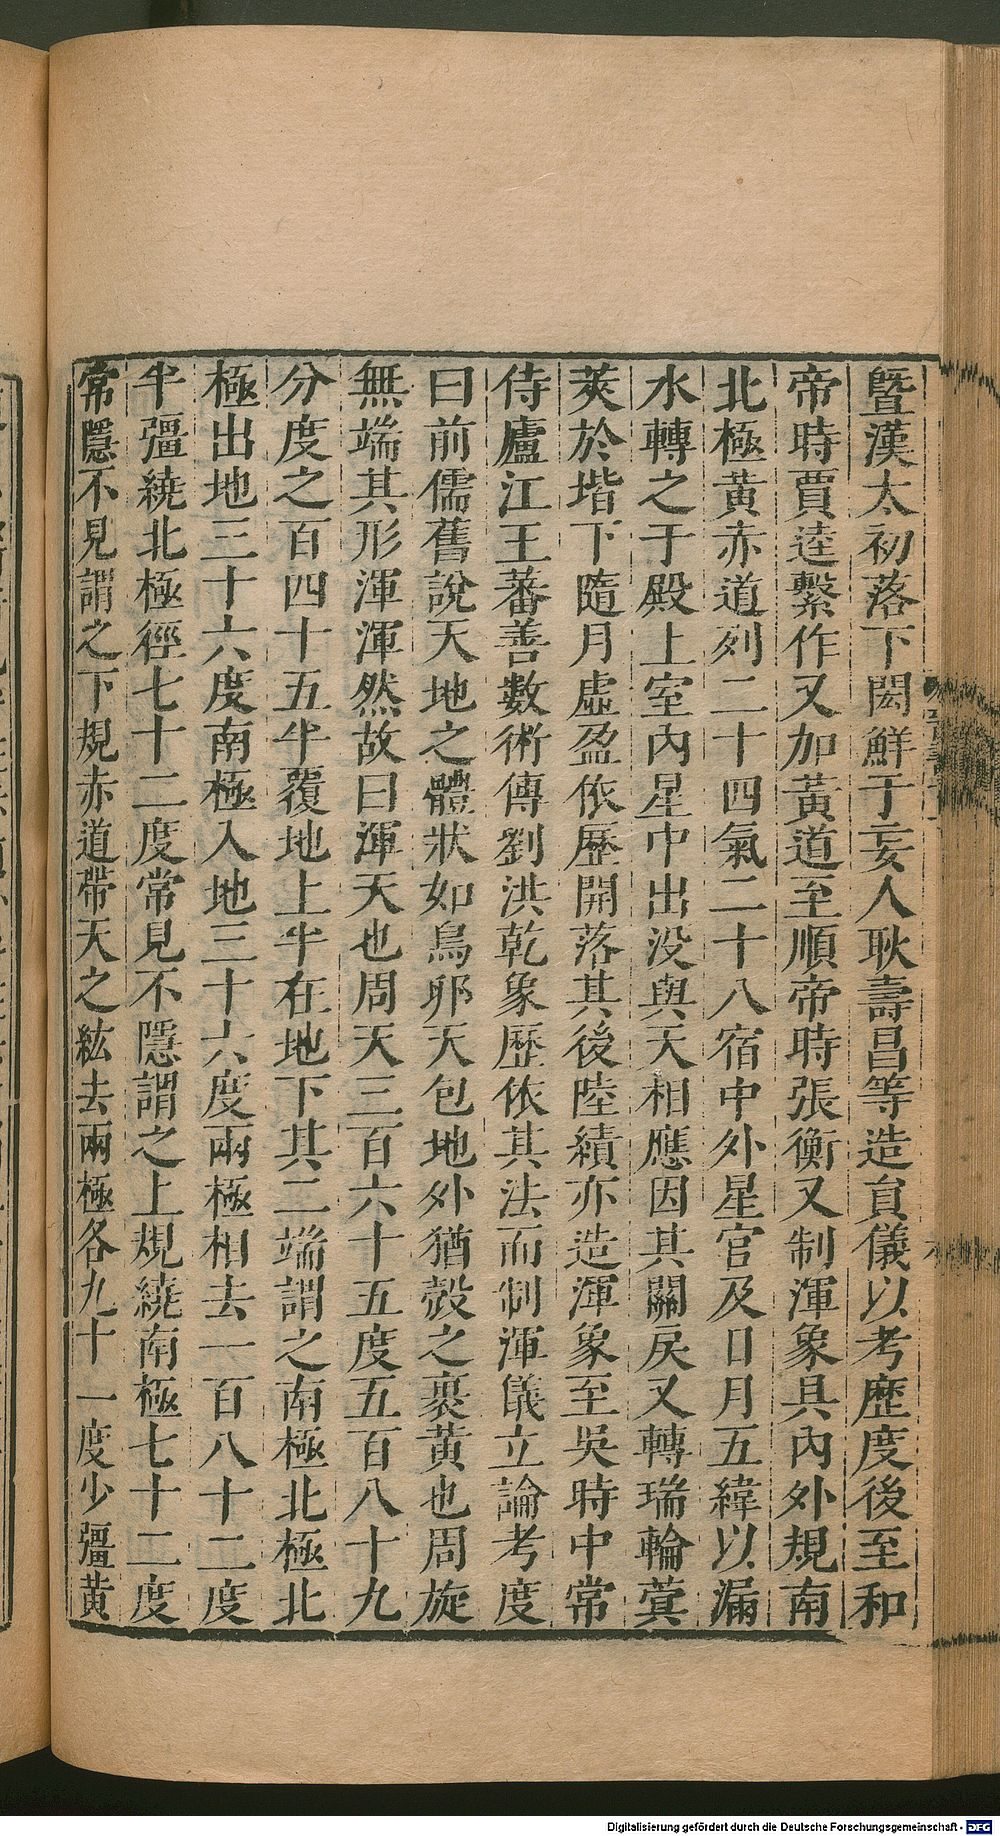 暨漢太初落下閎鮮于妄人耿壽昌等造員儀以考歷度後至和
帝時賈逵繫作又加黃道至順帝時張衡又制渾象具內外規南
北極黃赤道列二十四氣二十八宿中外星官及日月五緯以漏
水轉之于殿上室內星中出没與天相應因其關戾又轉瑞輪蓂
莢於堦下隨月虛盈依歷開落其後陸績亦造渾象至吳時中常
侍廬江王蕃善數術傳劉洪乾象歷依其法而制渾儀立論考度
曰前儒舊說天地之體狀如鳥卵天包地外猶殼之裹黃也周旋
無端其形渾渾然故曰渾天也周天三百六十五度五百八十九
分度之百四十五半覆地上半在地下其二端謂之南極北極北
極出地三十六度南極入地三十六度兩極相去一百八十二度
半彊繞北極徑七十二度常見不隱謂之上規繞南極七十二度
常隱不見謂之下規赤道帶天之紘去兩極各九十一度少彊黃
Digitalisierung gefördert durch die Deutsche Forschungsgemeinschaft - DFG